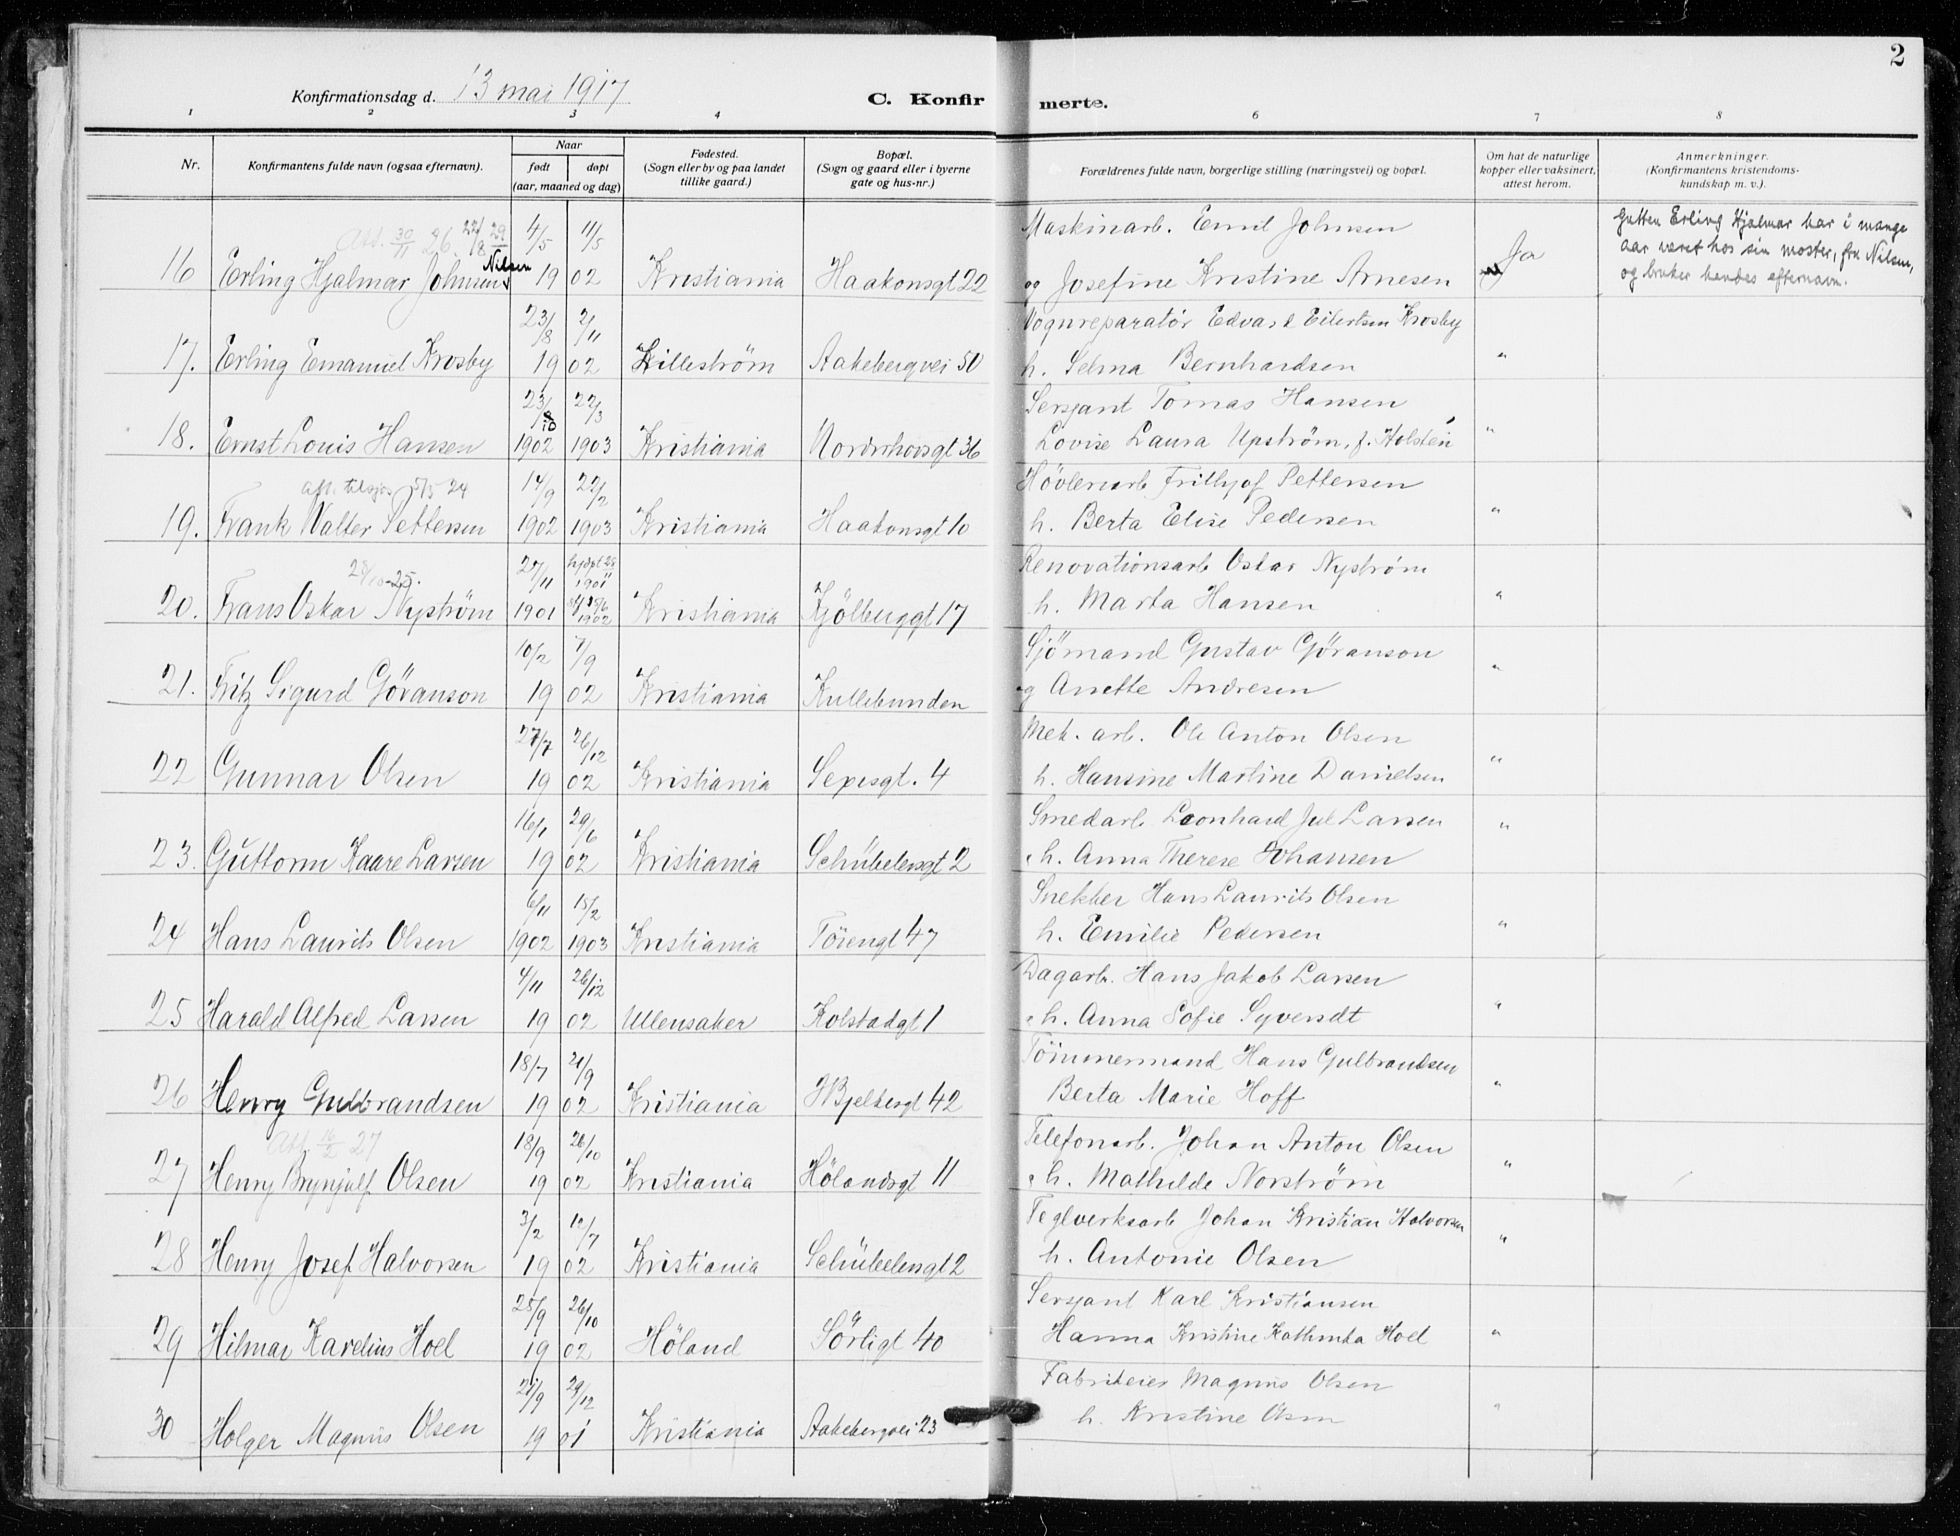 2
Konfirmationsdag d. 13 mai 1917
C. Konfirmerte.
1 2 3 4 6 7 8
Nr.
Konfirmantens fulde navn (ogsaa efternavn).
Naar
født
døpt
(aar, maaned og dag)
Fødested.
(Sogn eller by og paa landet
tillike gaard.)
Bopæl.
(Sogn og gaard eller i byerne
gate og hus-nr.)
Forældrenes fulde navn, borgerlige stilling (næringsvei) og bopæl.
Om hat de naturlige
kopper eller vaksinert,
attest herom.
Anmerkninger.
(Konfirmantens kristendoms-
kundskap m. v.).
Att. 30/11 26. 22/8 29 4/5 11/5 Maskinarb. Emil Johnsen
16 Erling Hjalmar Johnsen Nilsen 19 02 Kristiania Haakonsgt 22 og Josefine Kristine Arnesen Ja
Gutten Erling Hjalmar har i mange
aar været hos sin moster, fru Nilsen,
og bruker hendes efternavn.
23/8 2/11 Vognreparatör Edvard Eilertsen Krosby
17. Erling Emanuel Krosby 19 02 Lilleström Aakebergvei 50 h. Selma Bernhardsen "
23/10 22/3 Sersjant Tomas Hansen
18. Ernst Louis Hansen 1902 1903 Kristiania Nordrehovsgt 36 Lovise Laura Upström, f. Holstén "
att. tilsjøs 5/5 24 14/9 22/2 Hövleriarb Frithjof Pettersen
19. Frank Walter Pettersen 1902 1903 Kristiania Haakonsgt 10 h. Berta Elise Pedersen "
28/10-25. 27/11 hjdpt 28/11 1901 Renovationsarb Oskar Nyström
20. Frans Oskar Nyström 1901 1902 Kristiania Kjölberggt 17 h. Marta Hansen "
10/2 7/9 Sjömand Gustav Göranson
21. Fritz Sigurd Göranson 19 02 Kristiania Kullebunden og Anette Andresen "
27/7 26/12 Mek. arb. Ole Anton Olsen
22 Gunnar Olsen 19 02 Kristiania Sexesgt. 4 h. Hansine Martine Danielsen "
16/1 29/6 Smedarb Leonhard Jul Larsen
23. Guttorm Kaare Larsen 19 02 Kristiania Schübelersgt 2 h. Anna Therese Johansen "
6/11 15/2 Snekker Hans Laurits Olsen
24 Hans Laurits Olsen 1902 1903 Kristiania Töiengt 47 h. Emilie Pedersen "
4/11 26/12 Dagarb. Hans Jakob Larsen
25 Harald Alfred Larsen 19 02 Ullensaker Kolstadgt 1 h. Anna Sofie Syversdt "
18/7 21/9 Tömmermand Hans Gulbrandsen
26 Henry Gulbrandsen 19 02 Kristiania HBjelkesgt 42 Berta Marie Hoff "
Att. 16/2 27 18/9 26/10 Telefonarb. Johan Anton Olsen
27 Henry Brynjulf Olsen 19 02 Kristiania Hölandsgt 11 h. Mathilde Norström "
3/2 12/7 Teglverksarb Johan Kristian Halvorsen
28 Henry Josef Halvorsen 19 02 Kristiania Schübelersgt 2 h. Antonie Olsen "
25/9 26/10 Sersjant Karl Kristiansen
29 Hilmar Karelius Hoel 19 02 Höland Sörligt 40 Hanna Kristine Kathinka Hoel "
27/9 29/12 Fabrikeier Magnus Olsen
30 Holger Magnus Olsen 19 01 Kristiania Aakebergvei 23 h. Kristine Olsen "